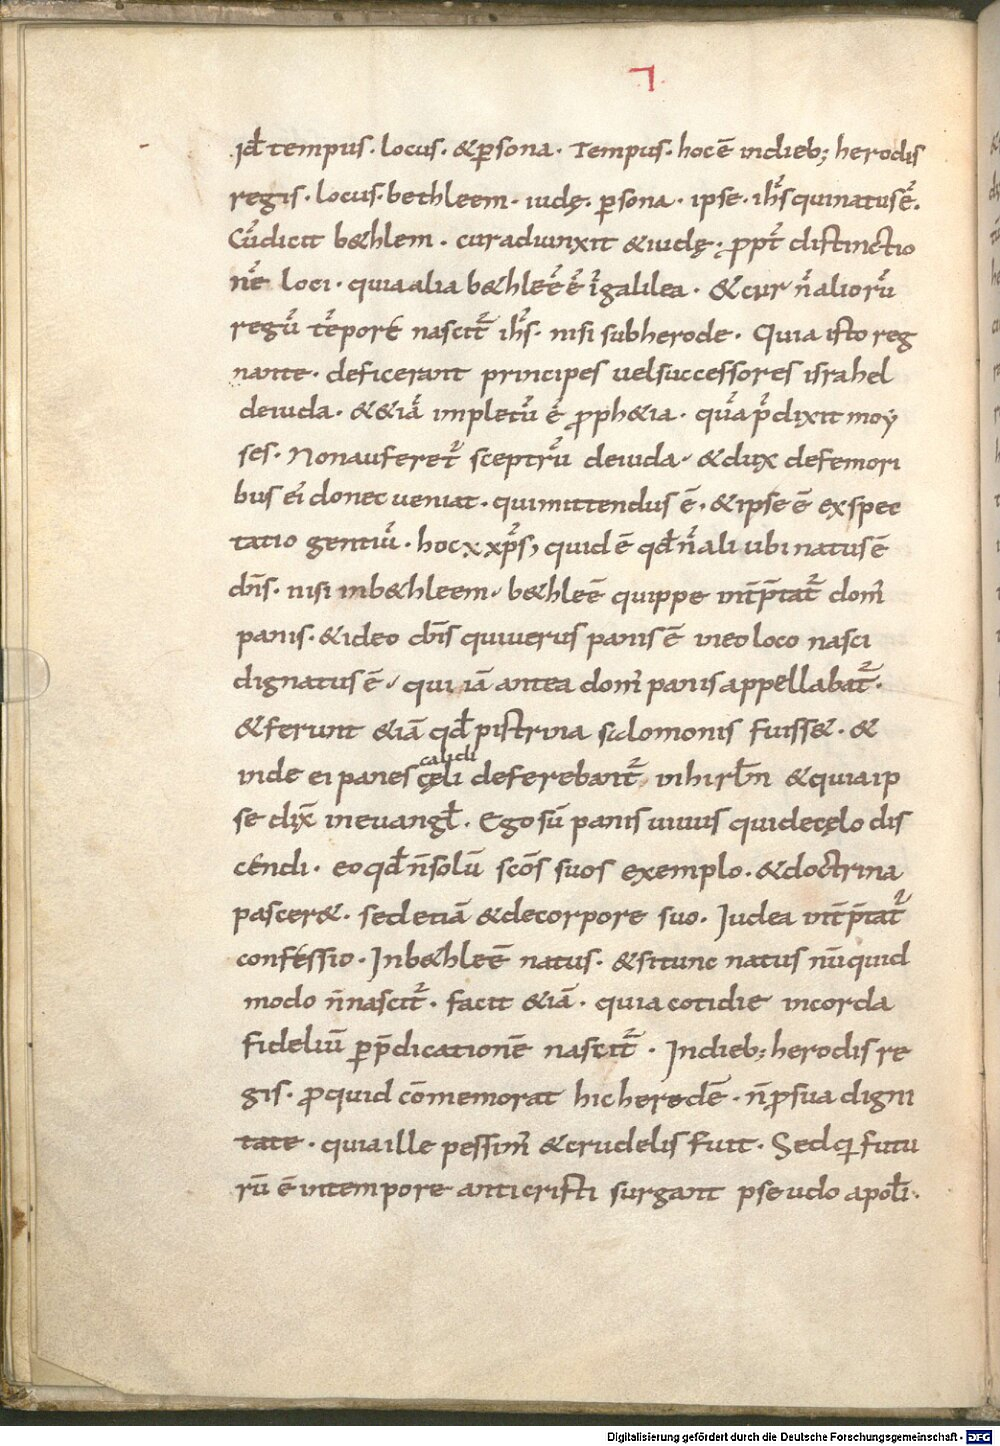 ⁊
id̄ tempus · locus · &ꝑsona · Tempus · hoc ē indieb; herodis
regis · locus · bethleem · iudę · ꝑsona · ipse · ih̄s qui natus ē ·
Cū dicit b&hlem · cur adiunxit &iudę · ꝓpt̄ distinctio
nē loci · quia alia b&hleē ē ī galilea · &cur n̄ aliorū
regū tēpore nascit̄ ih̄s · nisi sub herode · Quia isto reg
nante · deficerant principes uel successores israhel
de iuda · &&iā impletū ē ꝓph&ia · quā p̄dixit moy
ses · Non auferet̄ sceptrū de iuda · &dux de femori
bus ei donec ueniat · qui mittendus ē · &ipse ē expec
tatio gentiū · hoc x xp̄s, quid ē qd̄ n̄ ali ubi natus ē
dn̄s · nisi in b&hleem · b&hleē quippe int̄p̄tat̄ dom̄
panis · &ideo dn̄s qui uerus panis ē in eo loco nasci
dignatus ē · qui iā antea dom̄ panis appellabat̄ ·
&ferunt &iā qd̄ pistrina salomonis fuiss& · &
calidi
inde ei panes cęli deferebant̄ in hirl̄m &quia ip
se dix̄ in euangl̄ · Ego sū panis uiuus qui de cęlo dis
cendi · eo qd̄ n̄ solū sc̄os suos exemplo · &doctrina
pascer& · sed etiā &de corpore suo · Iudea int̄p̄tat̄
confessio · In b&hleē natus · &si tunc natus nūquid
modo n̄ nascit̄ · facit &iā · quia cotidie in corda
fideliū ꝑ p̄dicationē nascit̄ · In dieb; herodis re
gis · ꝓ quid cōmemorat hic herodē · n̄ ꝓ sua digni
tate · quia ille pessim̄ &crudelis fuit · Sed qꝛ futu
rū ē in tempore anticristi surgant pseudo apol̄i ·
Digitalisierung gefördert durch die Deutsche Forschungsgemeinschaft · DFG